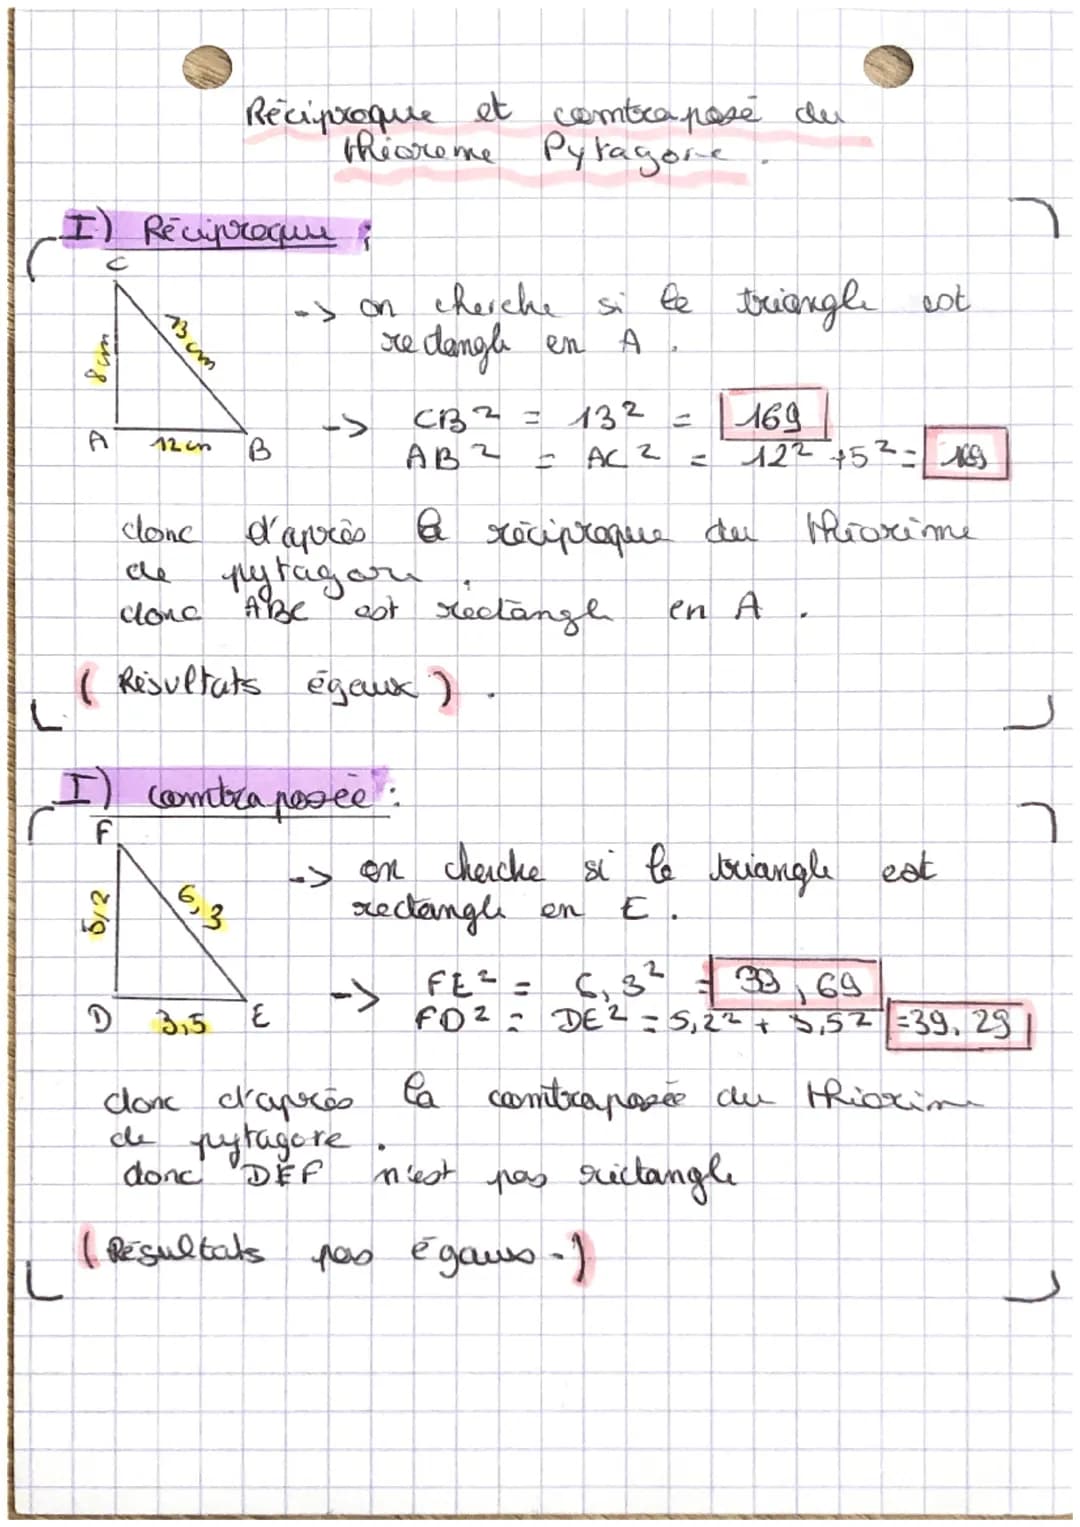 Réciproque et contraposé du
théoreme Pytagore.
I) Réciproque :
C
8 cm
13 cm
A 12 cm B
-> on cherche si le triangle est
rectangle en A.
-> CB² = 13² = 169
AB² = AC² = 12² + 5² = 169
donc d'après la réciproque du théorème
de pytagore.
donc ABC est rectangle en A.
( Résultats égaux ).
I) contraposée :
F
5,2
6,3
D 3,5 E
-> on cherche si le triangle est
rectangle en E.
-> FE² = 6,3² = 39,69
FD² = DE² = 5,2² + 3,5² = 39,29
donc d'après la contraposée du théorème
de pytagore.
donc DEF n'est pas rectangle
( Résultats pas égaux. )